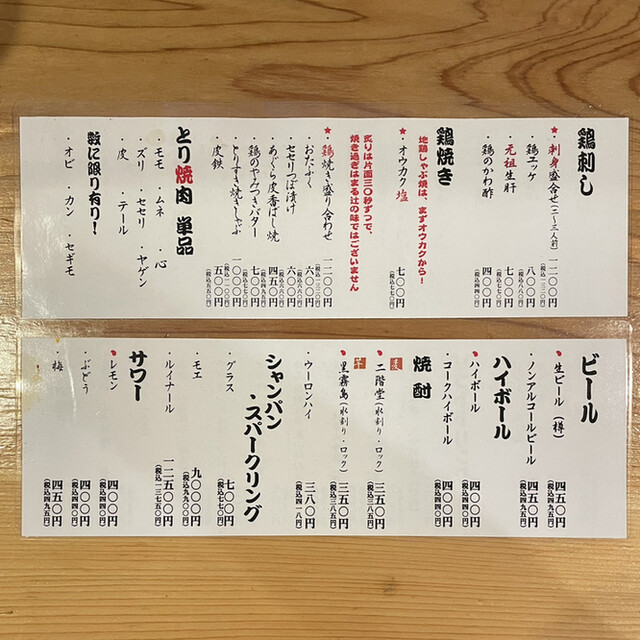 鶏刺し
★刺身盛合せ(二〜三人前) 一二〇〇円
(税込一三二〇円)
・鶏エッグ 八〇〇円
(税込八八〇円)
・元祖生肝 七〇〇円
(税込七七〇円)
・鶏のかわ酢 四〇〇円
(税込四四〇円)
鶏焼き
地鶏しゃぶ焼は、まずオウカクから!
★オウカク塩 七〇〇円
(税込七七〇円)
炙りは片面三〇秒ずつで、
焼き過ぎはまる辻の味ではございません
★鶏焼き盛り合わせ 一二〇〇円
(税込一三二〇円)
・おたふく 六〇〇円
(税込六六〇円)
・セセリつぼ漬け 六〇〇円
(税込六六〇円)
・あぶら皮香ばし焼 四五〇円
(税込四九五円)
・鶏のやみつきバター 七〇〇円
(税込七七〇円)
・とりすき焼きしゃぶ 一〇〇〇円
(税込一一〇〇円)
・皮鉄 五〇〇円
(税込五五〇円)
とり焼肉 単品
・モモ ・ムネ ・心
・ズリ ・セセリ ・ヤゲン
・皮 ・テール
数に限り有り!
・オビ ・カン ・セギモ
ビール
・生ビール(樽) 四五〇円
(税込四九五円)
・ノンアルコールビール 四五〇円
(税込四九五円)
ハイボール
・ハイボール 四〇〇円
(税込四四〇円)
・コークハイボール 四〇〇円
(税込四四〇円)
焼酎
麦
・二階堂(水割り・ロック) 三五〇円
(税込三八五円)
芋
・黒霧島(水割り・ロック) 三五〇円
(税込三八五円)
・ウーロンハイ 三八〇円
(税込四一八円)
シャンパン
・スパークリング
・グラス 七〇〇円
(税込七七〇円)
・モエ 九〇〇〇円
(税込九九〇〇円)
・ルイナール 一二五〇〇円
(税込一三七五〇円)
サワー
・レモン 四〇〇円
(税込四四〇円)
・ぶどう 四〇〇円
(税込四四〇円)
・梅 四五〇円
(税込四九五円)